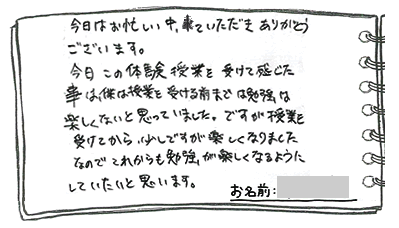 今日はお忙しい中、来ていただきありがとう
ございます。
今日この体験授業を受けて感じた
事は、僕は授業を受ける前までは勉強は
楽しくないと思っていました。ですが授業を
受けてから、少しですが楽しくなりました
なのでこれからも勉強が楽しくなるように
していたいと思います。
お名前: